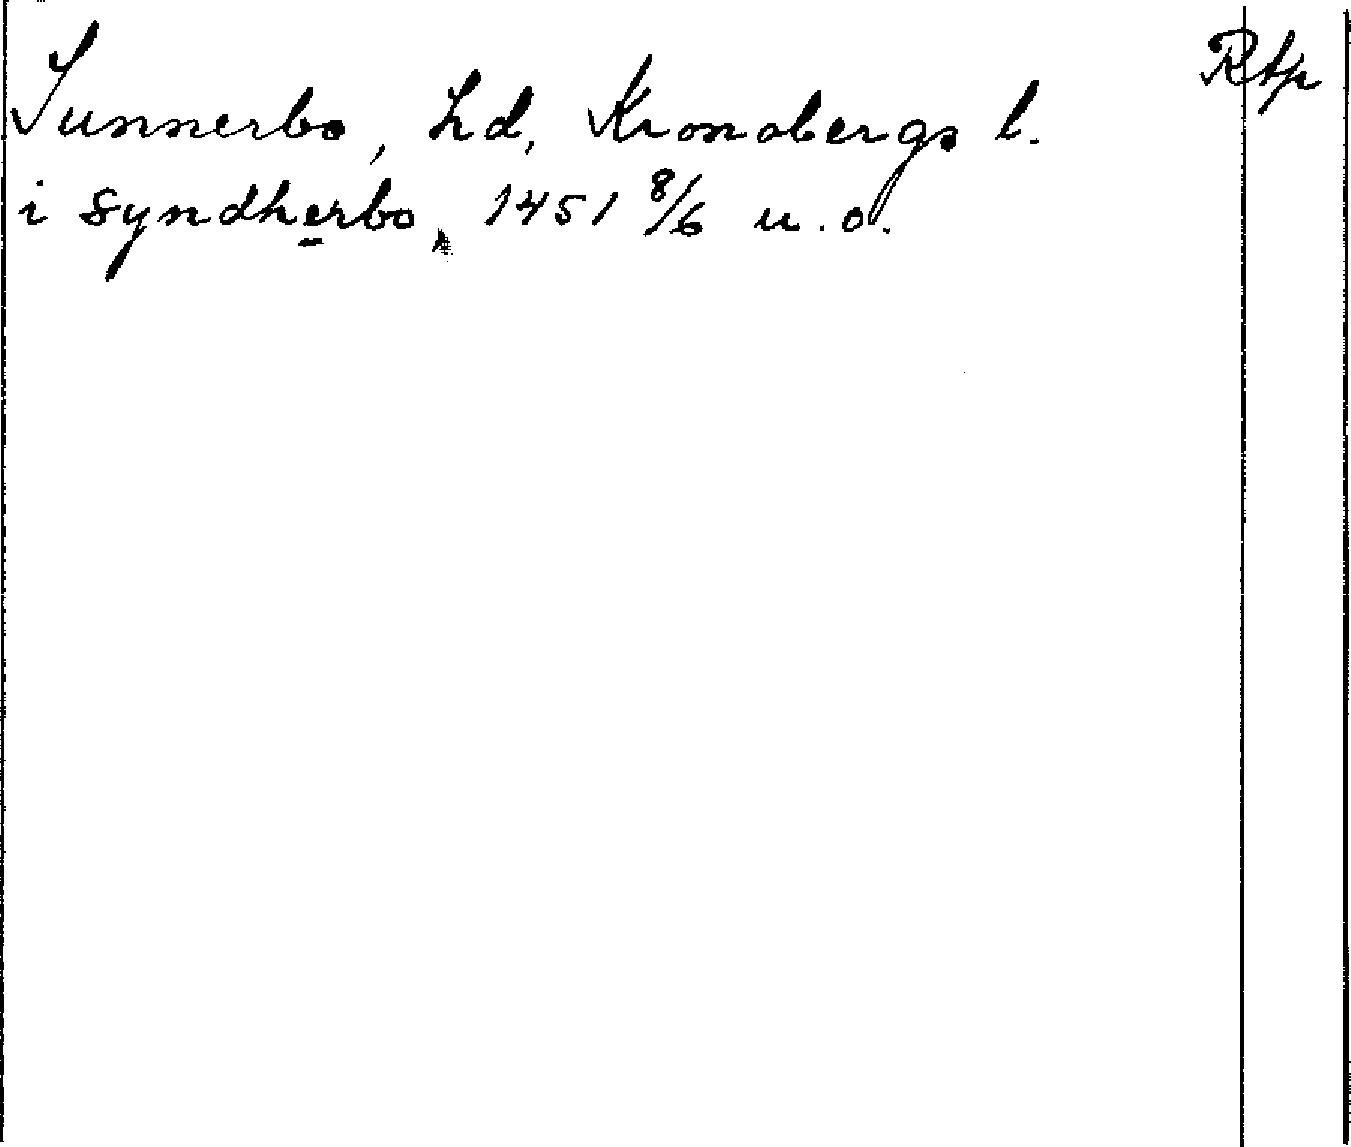 Sunnerbo, hd, Kronobergs l.
i syndherbo, 1451 8/6 u.o.
Rtp